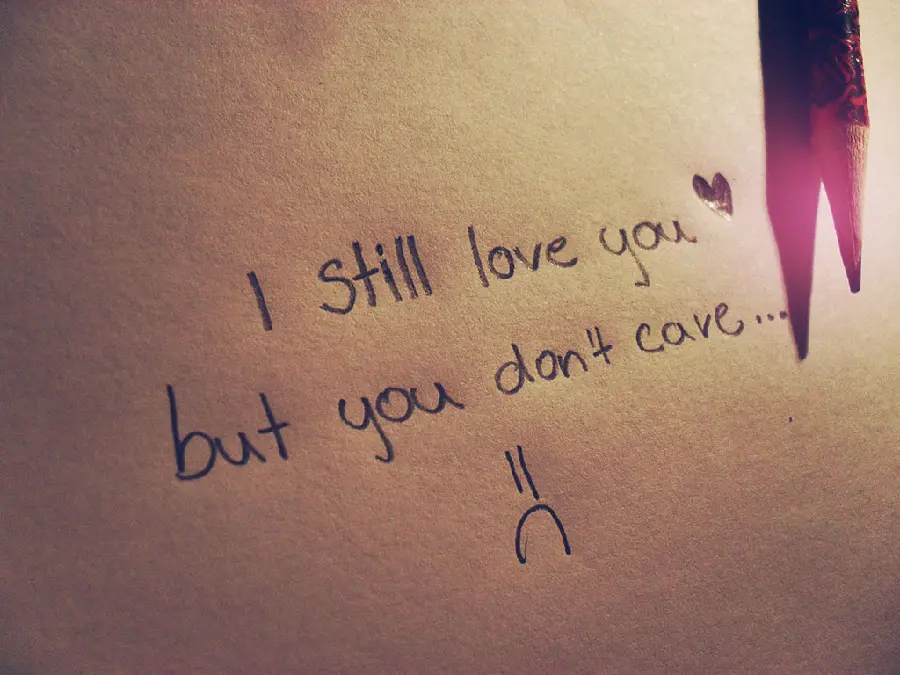 I still love you ♥
but you don't care...